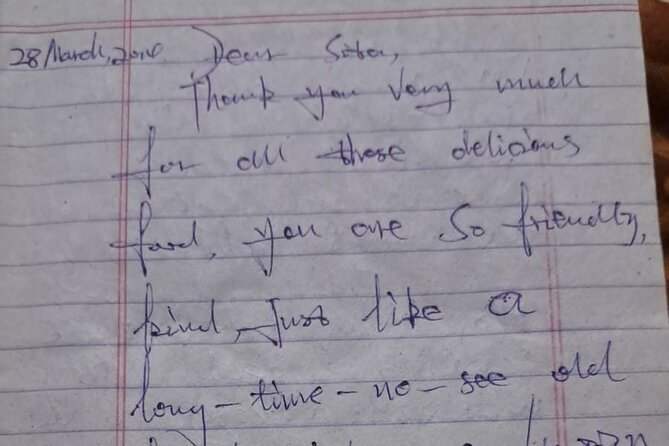 28 March, 2016 Dear Sita,
Thank you very much
for all these delicious
food, you are so friendly,
kind, Just like a
long-time-no-see old